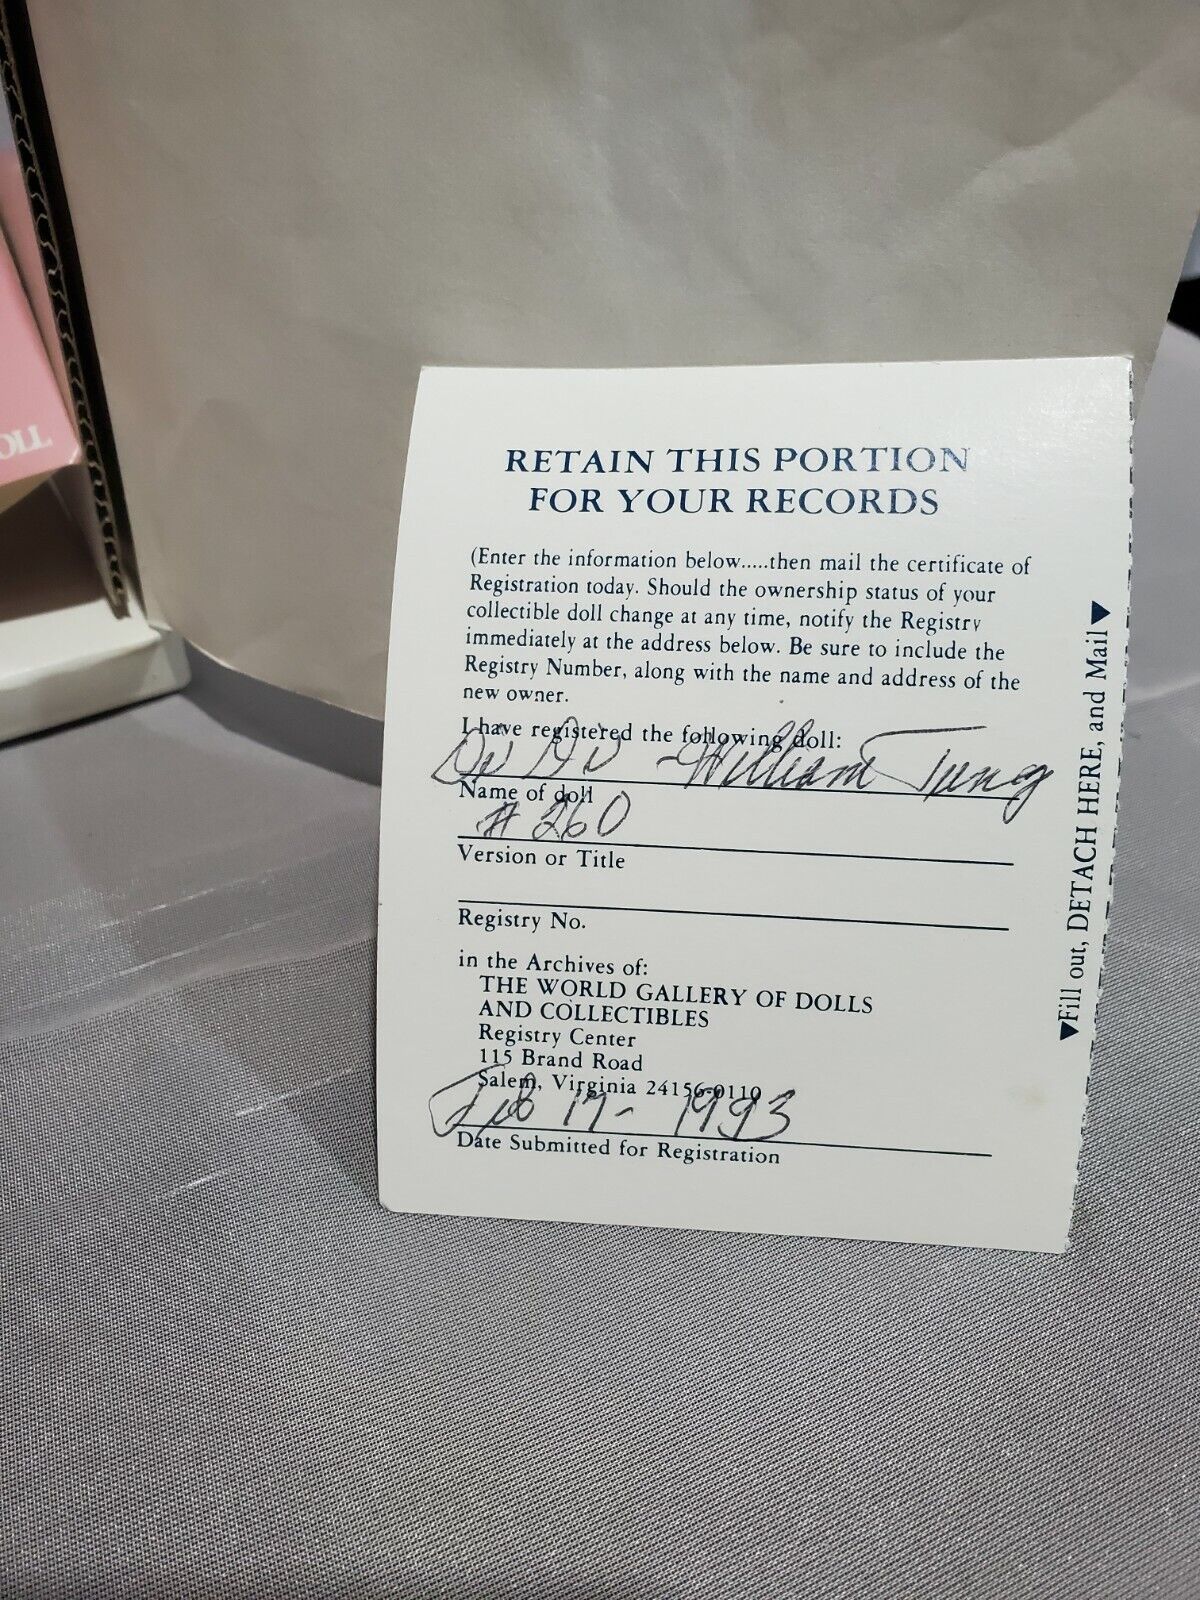 OLL
RETAIN THIS PORTION
FOR YOUR RECORDS
(Enter the information below.....then mail the certificate of
Registration today. Should the ownership status of your
collectible doll change at any time, notify the Registry
immediately at the address below. Be sure to include the
Registry Number, along with the name and address of the
new owner.
I have registered the following doll:
- William Tung
Name of doll
# 260
Version or Title
Registry No.
in the Archives of:
THE WORLD GALLERY OF DOLLS
AND COLLECTIBLES
Registry Center
115 Brand Road
Salem, Virginia 24156-0110
Feb 17 - 1993
Date Submitted for Registration
▼Fill out, DETACH HERE, and Mail▼